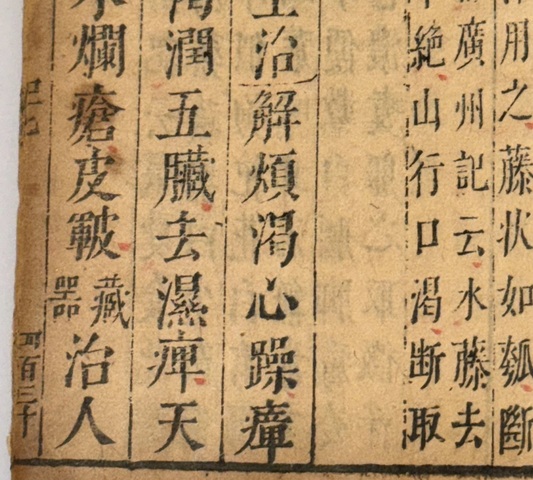 用之藤状如瓠斷
廣州記云水藤去
絶山行口渴断取
治解煩渴心躁瘴
潤五臟去濕痺天
爛瘡皮皸藏器治人
百三十